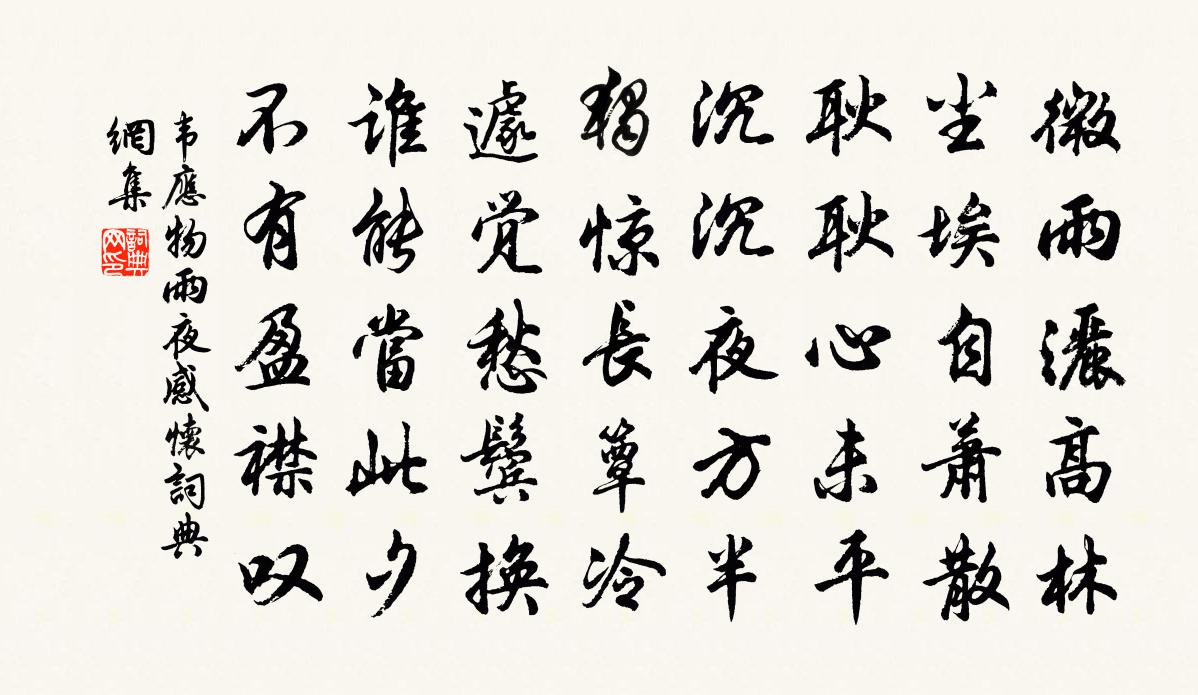 微雨灑高林
尘埃自萧散
耿耿心未平
沉沉夜方半
獨惊長簟冷
遽觉愁鬓换
谁能當此夕
不有盈襟叹
韦應物雨夜感懷詞典
網集
詞典
网印